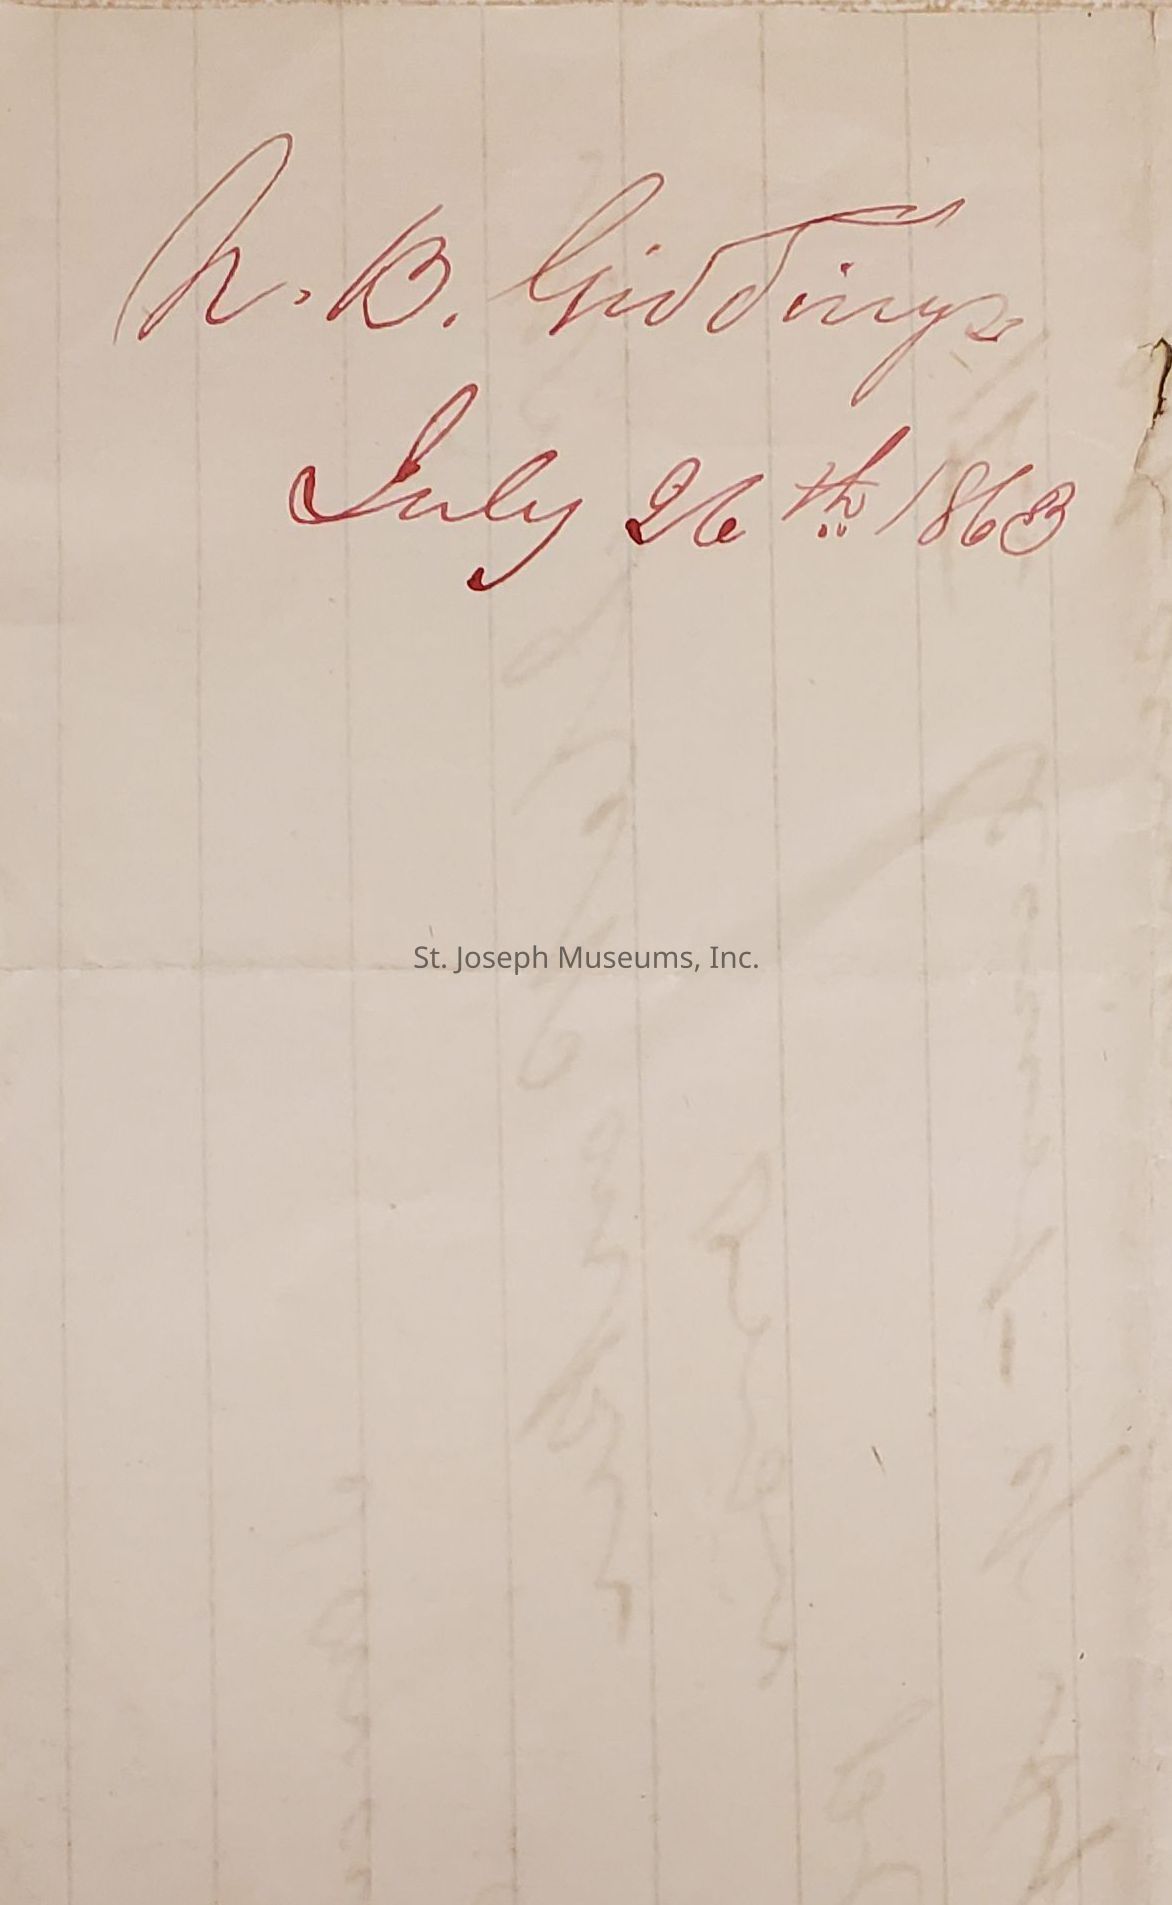 N. B. Giddings
July 26th 1863
St. Joseph Museums, Inc.